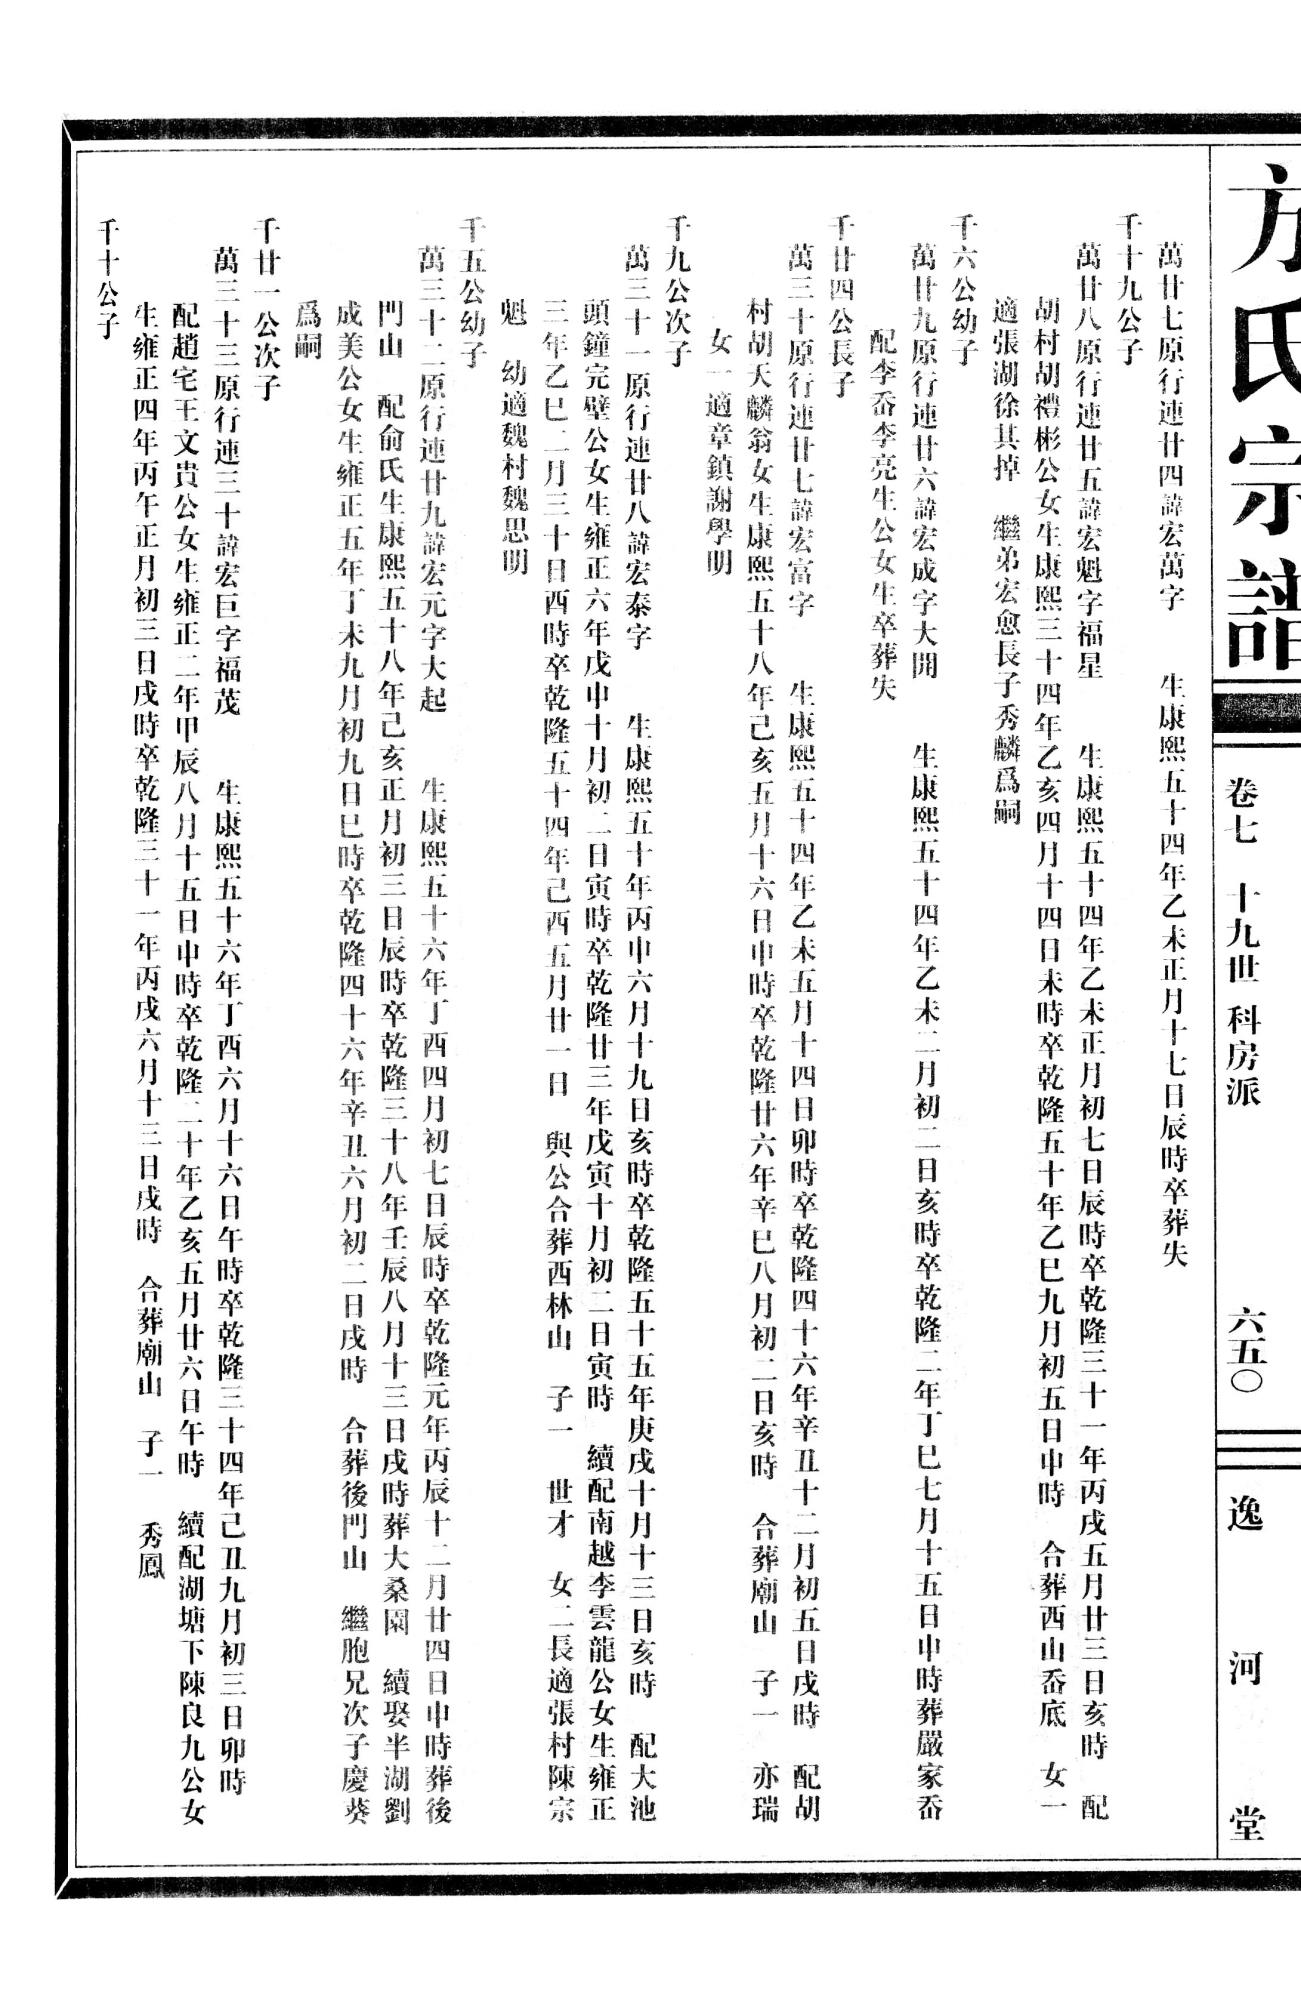 方氏宗譜
卷七 十九世 科房派
六五〇
逸河堂
萬廿七原行連廿四諱宏萬字 生康熙五十四年乙未正月十七日辰時卒葬失
千十九公子
萬廿八原行連廿五諱宏魁字福星 生康熙五十四年乙未正月初七日辰時卒乾隆三十一年丙戌五月廿三日亥時 配
胡村胡禮彬公女生康熙三十四年乙亥四月十四日未時卒乾隆五十年乙巳九月初五日申時 合葬西山岙底 女一
適張湖徐其掉 繼弟宏愈長子秀麟爲嗣
千六公幼子
萬廿九原行連廿六諱宏成字大開 生康熙五十四年乙未二月初二日亥時卒乾隆二年丁巳七月十五日申時葬嚴家岙
配李岙李亮生公女生卒葬失
千廿四公長子
萬三十原行連廿七諱宏富字 生康熙五十四年乙未五月十四日卯時卒乾隆四十六年辛丑十二月初五日戌時 配胡
村胡天麟翁女生康熙五十八年己亥五月十六日申時卒乾隆廿六年辛巳八月初二日亥時 合葬廟山 子一 亦瑞
女一適章鎮謝學明
千九公次子
萬三十一原行連廿八諱宏泰字 生康熙五十年丙申六月十九日亥時卒乾隆五十五年庚戌十月十三日亥時 配大池
頭鐘完璧公女生雍正六年戊申十月初二日寅時卒乾隆廿三年戊寅十月初二日寅時 續配南越李雲龍公女生雍正
三年乙巳二月三十日酉時卒乾隆五十四年己酉五月廿一日 與公合葬西林山 子一 世才 女二長適張村陳宗
魁 幼適魏村魏思明
千五公幼子
萬三十二原行連廿九諱宏元字大起 生康熙五十六年丁酉四月初七日辰時卒乾隆元年丙辰十二月廿四日申時葬後
門山 配俞氏生康熙五十八年己亥正月初三日辰時卒乾隆三十八年壬辰八月十三日戌時葬大桑園 續娶半湖劉
成美公女生雍正五年丁未九月初九日巳時卒乾隆四十六年辛丑六月初二日戌時 合葬後門山 繼胞兄次子慶葵
爲嗣
千廿一公次子
萬三十三原行連三十諱宏巨字福茂 生康熙五十六年丁酉六月十六日午時卒乾隆三十四年己丑九月初三日卯時
配趙宅王文貴公女生雍正二年甲辰八月十五日申時卒乾隆二十年乙亥五月廿六日午時 續配湖塘下陳良九公女
生雍正四年丙午正月初三日戌時卒乾隆三十一年丙戌六月十三日戌時 合葬廟山 子一 秀鳳
千十公子